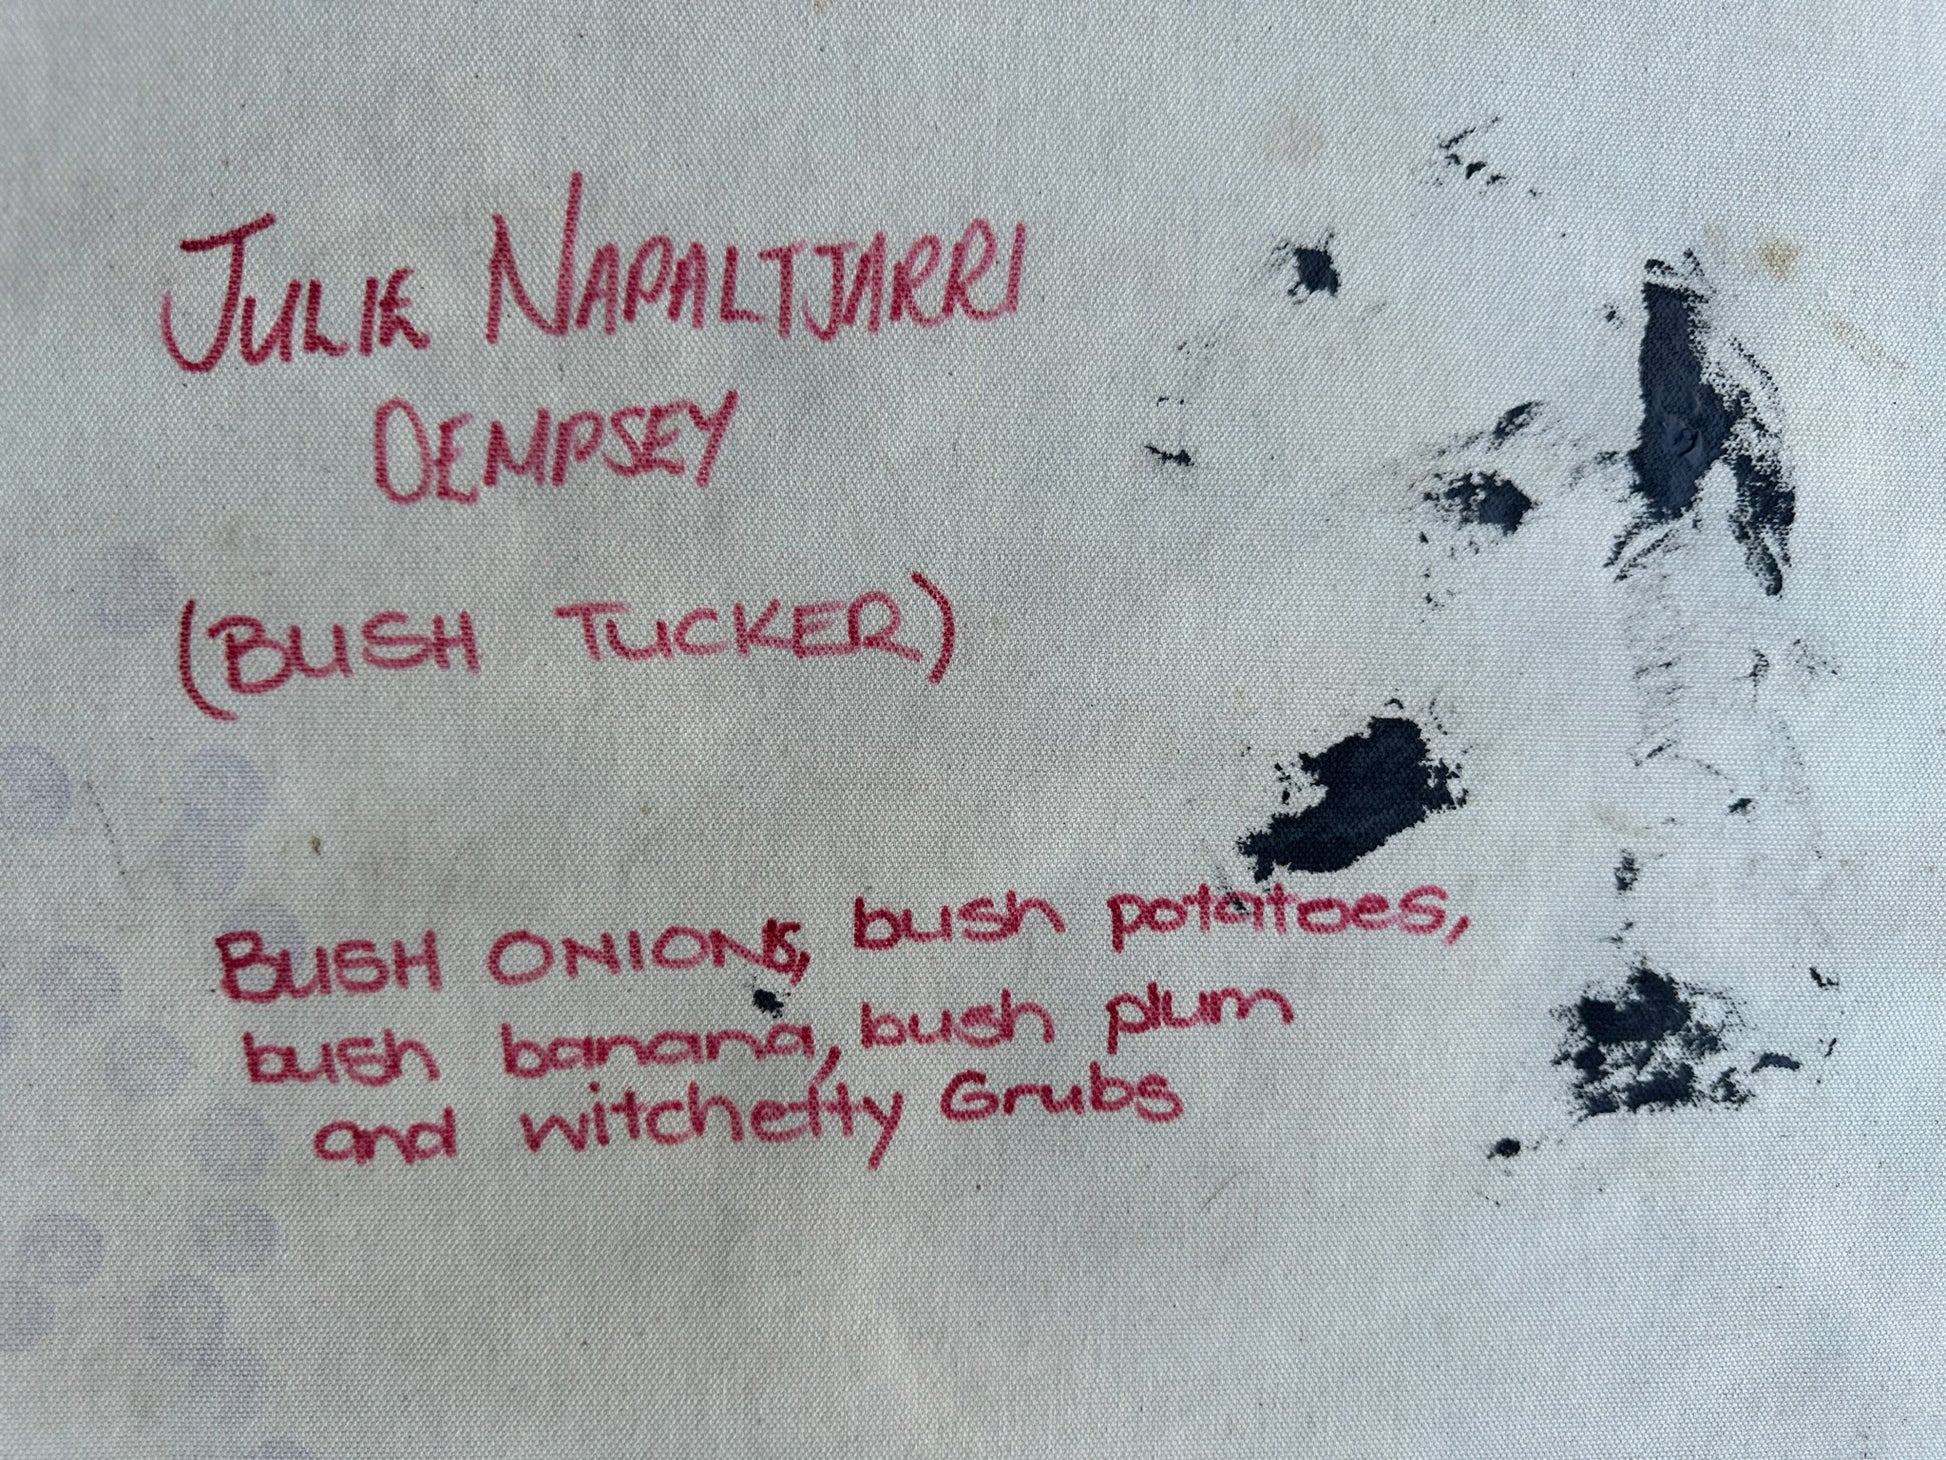 JULIE NAPALTJARRI
DEMPSEY
(BUSH TUCKER)
BUSH ONIONS, bush potatoes,
bush banana, bush plum
and witchetty Grubs